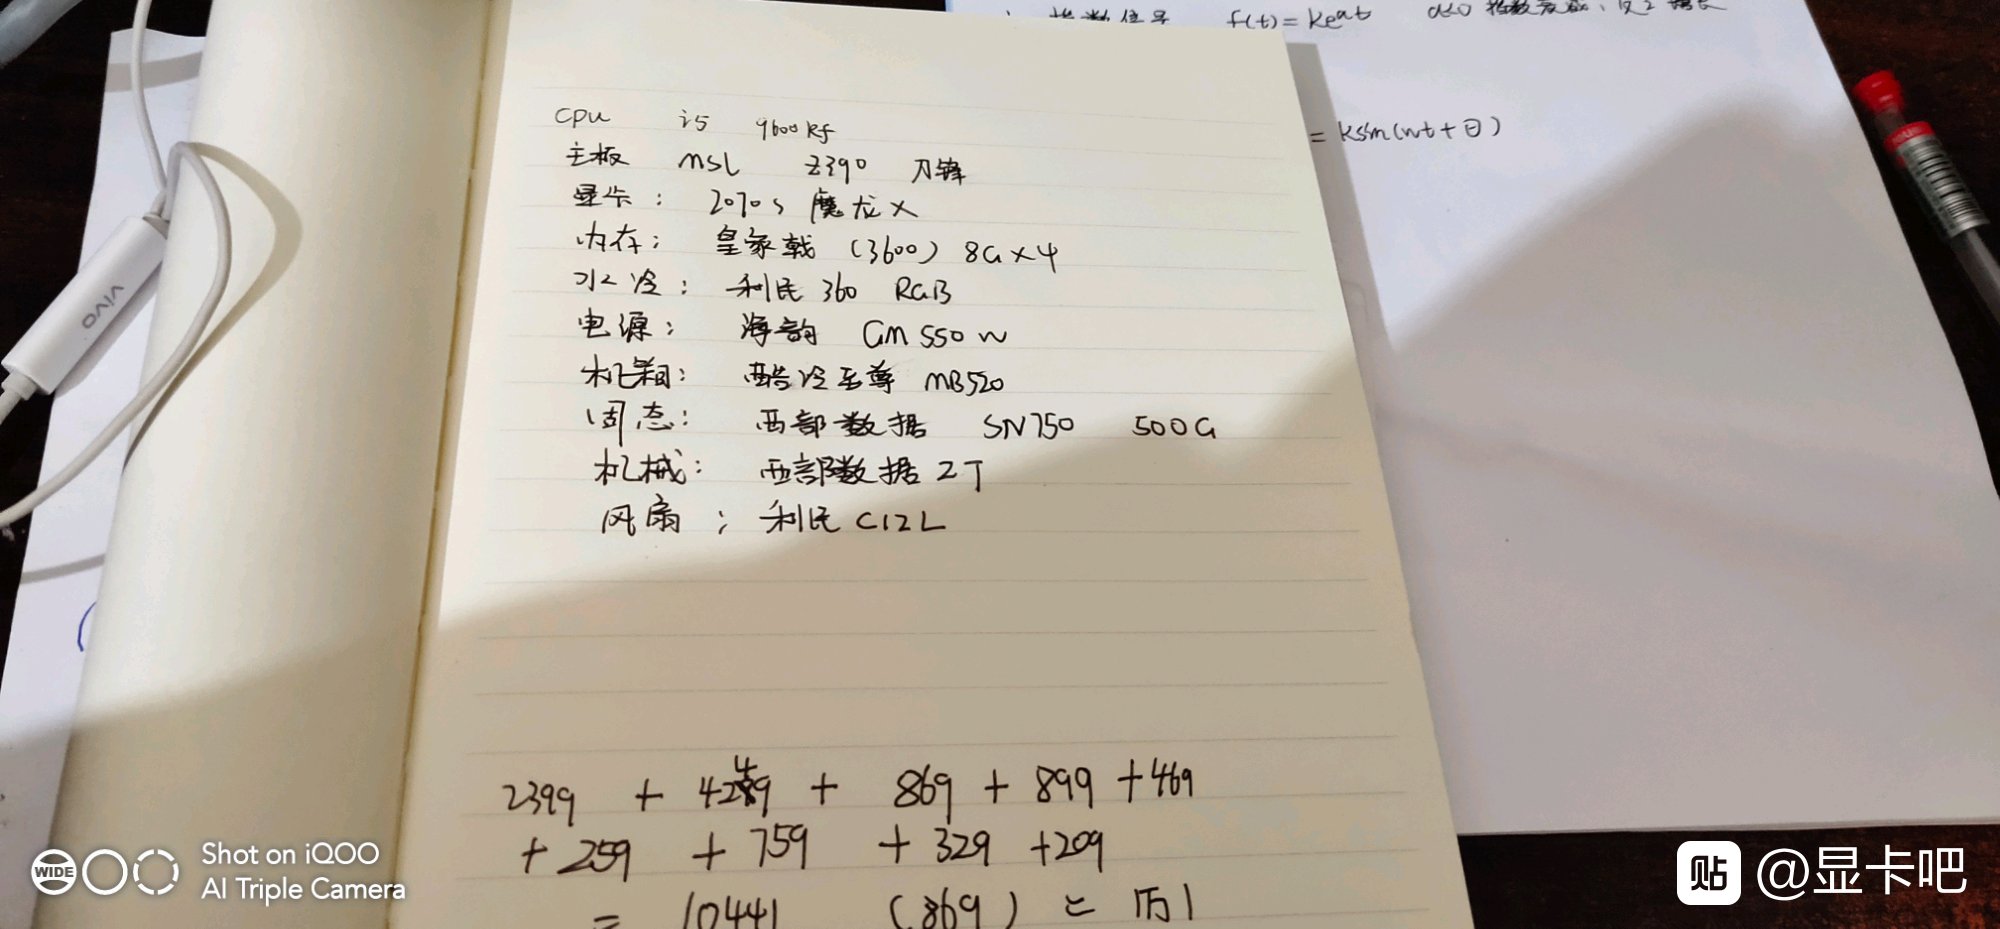 f(t)=Ke^at α<0 指数衰减、反之增长
=Ksin(wt+θ)
cpu i5 9600kf
主板 msL z390 刀锋
显卡: 2070s 魔龙X
内存: 皇家戟 (3600) 8G×4
水冷: 利民 360 RGB
电源: 海韵 GM 550W
机箱: 酷冷至尊 MB520
固态: 西部数据 SN750 500G
机械: 西部数据 2T
风扇: 利民 C12L
2399 + 4249 + 869 + 899 +469
+ 259 + 759 + 329 +209
= 10441 (869) = 1万1
vivo
WIDE
Shot on iQOO
AI Triple Camera
贴 @显卡吧